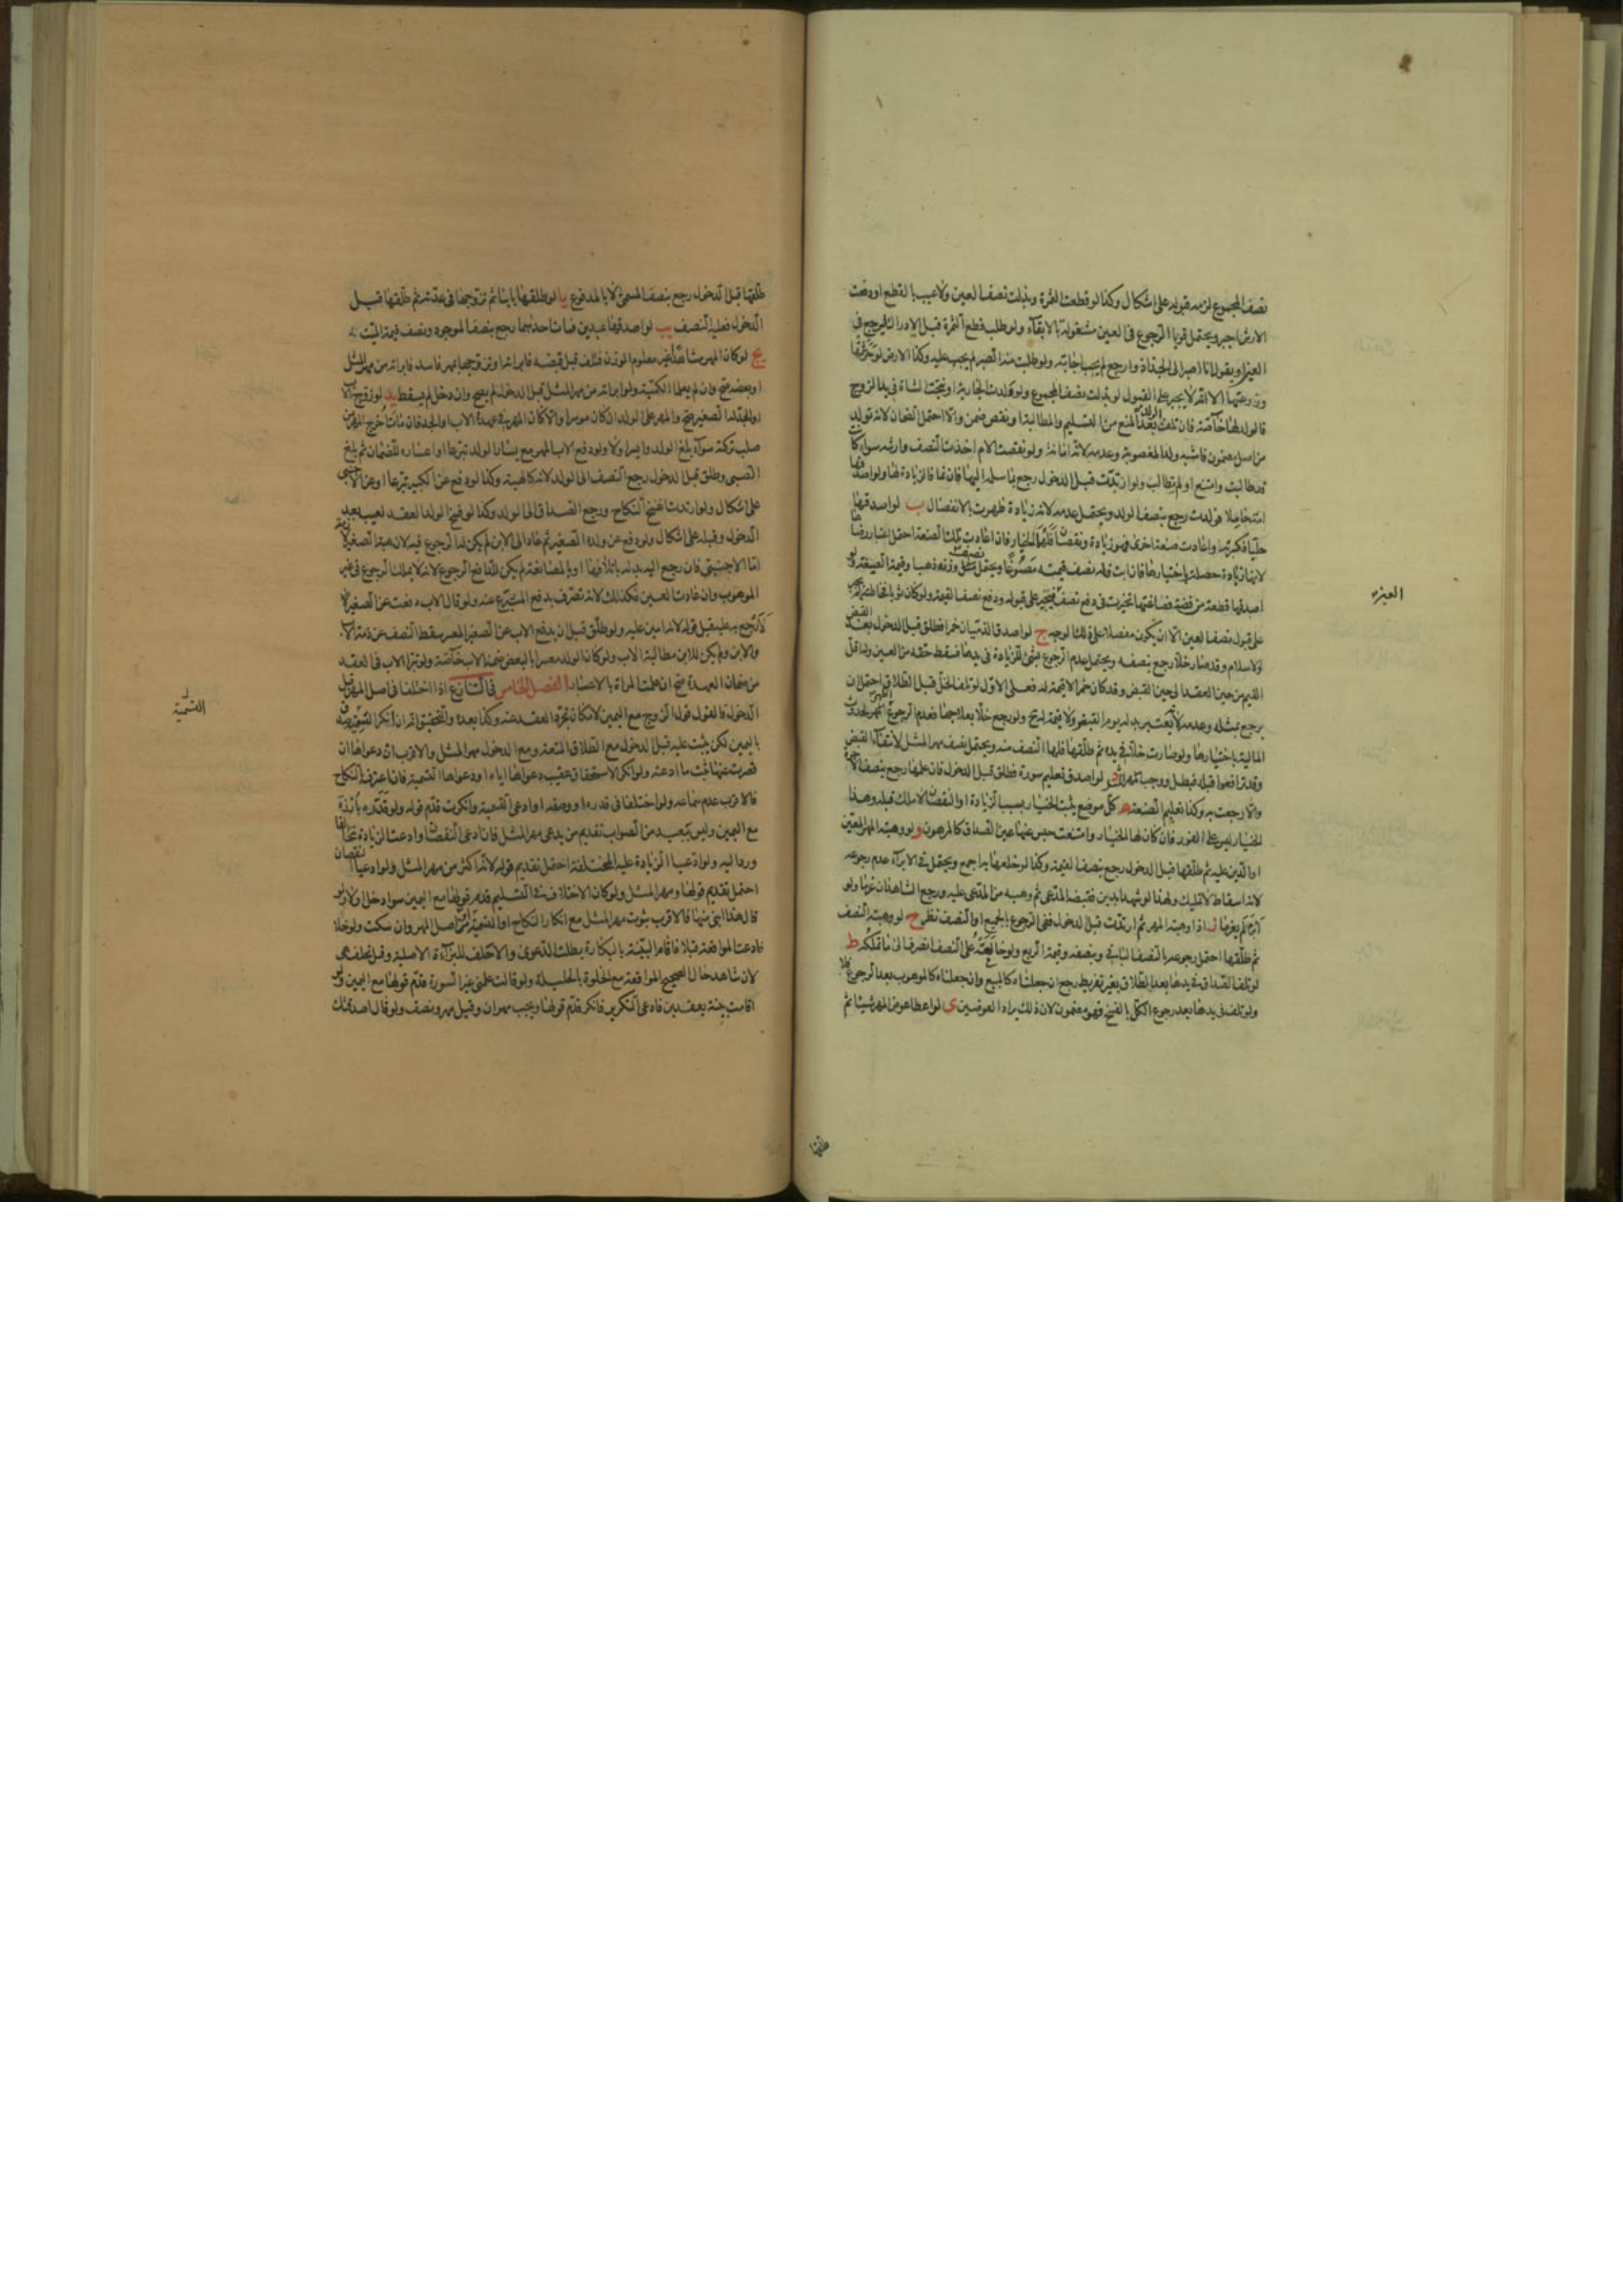 نصف المجموع لزمه قبوله على اشكال وكذا لو قطعت الثمرة وبذلت نصف العين ولا عيب بالقطع او دفعت
الارش اجبر ويحتمل قويا الرجوع في العين مشغولة بالابقاء ولو طلب قطع الثمرة قبل الادراك ليرجع في
العين او يقول انا اصبر الى الجذاذ وارجع لم يجب اجابته ولو طلبت منه الصبر لم يجب عليه وكذا الارض لو حرثتها
وزرعتها الا انه لا يجبر على القبول لو بذلت نصف المجموع ولو ولدت الجارية او نتجت الشاة في يد الزوج
فالولد لها خاصة فان تلف الولد بعد المنع من التسليم والمطالبة او نقص ضمن والا احتمل الضمان لانه تولد
من اصل مضمون فاشبه ولد المغصوبة وعدمه لانه امانة ولو نقصت الام اخذت النصف وارشه سواء كانت
قد طالبت وامتنع او لم تطالب ولو ارتدت قبل الدخول رجع بما سلمه اليها فان نما فالزيادة لها ولو اصدقها
امة حاملا فولدت رجع بنصف الولد ويحتمل عدمه لانه زيادة ظهرت بالانفصال ب لو اصدقها
حليا فكسرته واعادت صنعة اخرى فهو زيادة ونقصان فلهما الخيار فان اعادت تلك الصنعة احتمل اعتبار رضاها
لانها زيادة حصلت باختيارها فان ابت فله نصف قيمته مصوغا ويحتمل مثل نصف وزنه ذهبا وقيمة الصيغة ولو
اصدقها قطعة من فضة فصاغتها تخيرت في دفع نصف فيجبر على قبوله ودفع نصف القيمة ولو كان ثوبا فخاطته لم يجبر
على قبول نصف العين الا ان يكون مفصلا على ذلك الوجه ج لو اصدق الذميان خمرا فطلق قبل الدخول بعد القبض
والاسلام وقد صار خلا رجع بنصفه ويحتمل عدم الرجوع بشئ للزيادة في يدها فسقط حقه من العين وله اقل
القيم من حين العقد الى حين القبض وقد كان خمرا لا قيمة له فعلى الاول لو تلف الخل قبل الطلاق احتمل ان
يرجع بمثله وعدمه لانه يعتبر بدله يوم القبض ولا قيمة له ح ولو رجع خلا بعلاجها فعدم الرجوع اظهر لحدوث
المالية باختيارها ولو صارت خلا في يده ثم طلقها فلها النصف منه ويحتمل نصف مهر المثل لانتفاء القبض
وقد ترافعوا قبله فبطل ووجب مهر المثل د لو اصدق تعليم سورة فطلق قبل الدخول فان علمها رجع بنصف الاجرة
والا رجعت به وكذا تعليم الصنعة ه كل موضع يثبت الخيار بسبب الزيادة او النقصان لا ملك قبله وهذا
الخيار ليس على الفور فان كان لها الخيار وامتنعت حبس عنها عين الصداق كالمرهون و لو وهبته المهر المعين
او الدين عليه ثم طلقها قبل الدخول رجع بنصف القيمة وكذا لو خلعها به اجمع ويحتمل في الابراء عدم رجوعه
لانه اسقاط لا تمليك ولهذا لو شهدا بدين فقبضه المدعي ثم وهبه من المدعى عليه ورجع الشاهدان غرما ولو
ابرا لم يغرما ز اذا وهبته المهر ثم ارتدت قبل الدخول ففي الرجوع بالجميع او النصف نظر ح لو وهبته النصف
ثم طلقها احتمل رجوعه بالنصف الباقي وبنصفه وقيمة الربع ولو خالعته على النصف انصرف الى ما تملكه ط
لو تلف الصداق في يدها بعد الطلاق بغير تفريط رجع ان جعلناه كالمبيع وان جعلناه كالموهوب بعد الرجوع فلا
ولو تلف في يدها بعد رجوع الكل بالفسخ فهو مضمون لان ذلك يراد العوضين ي لو اعطاها عوض المهر شيئا ثم
العين
طلقها
طلقها قبل الدخول رجع بنصف المسمى لا بالمدفوع يا لو طلقها باينا ثم تزوجها في عدته ثم طلقها قبل
الدخول فعليه النصف يب لو اصدقها عبدين فمات احدهما رجع بنصف الموجود ونصف قيمة الميت
يج لو كان المهر مشاهدا غير معلوم الوزن فتلف قبل قبضه فابراته او تزوجها بمهر فاسد فابراته من مهر المثل
او بعضه صح وان لم يعلما الكمية ولو ابراته من مهر المثل قبل الدخول لم يصح وان دخل لم يسقط يد لو زوج الاب
او الجد له الصغير صح والمهر على الولد ان كان موسرا والا كان المهر في عهدة الاب او الجد فان مات اخرج المهر من
صلب تركته سواء بلغ الولد وايسر اولا ولو دفع الاب المهر مع يسار الولد تبرعا او اعساره للضمان ثم بلغ
الصبي وطلق قبل الدخول رجع النصف الى الولد لانه كالهبة وكذا لو دفع عن الكبير تبرعا او عن الاجنبي
على اشكال ولو ارتدت انفسخ النكاح ورجع الصداق الى الولد وكذا لو فسخ الولد العقد لعيب بعد
الدخول وقبله على اشكال ولو دفع عن ولده الصغير ثم عاد الى الابن لم يكن له الرجوع فيه لان هبة الصغير لازمة
اما الاجنبي فان رجع اليه بدله باتلافها او بالمصانعة لم يكن للدافع الرجوع لانه لا يملك الرجوع في غير
الموهوب وان عادت العين فكذلك لانه تصرف بدفع المتبرع عنه ولو قال الاب دفعت عن الصغير لا
لارجع به عليه قبل قوله لانه امين عليه ولو طلق قبل ان يدفع الاب عن الصغير المعسر سقط النصف عن ذمة الاب
والابن ولم يكن للابن مطالبة الاب ولو كان الولد معسرا بالبعض ضمنه الاب خاصة ولو تبرا الاب في العقد
من ضمان العهدة صح ان علمت المراة بالاعسار الفصل الخامس في التنازع اذا اختلفا في اصل المهر قبل
الدخول فالقول قول الزوج مع اليمين لامكان تجرد العقد عنه وكذا بعده والتحقيق انه ان انكر التسمية صدق
باليمين لكن يثبت عليه قبل الدخول مع الطلاق المتعة ومع الدخول مهر المثل والاقرب ان دعواها ان
قصرت عنها ثبت ما ادعته ولو انكر الاستحقاق عقيب دعواها اياه او دعواها التسمية فان اعترف بالنكاح
فالاقرب عدم سماعه ولو اختلفا في قدره او وصفه او ادعى التسمية وانكرت قدم قوله ولو قدره بارزة
مع اليمين وليس ببعيد من الصواب تقديم من يدعي مهر المثل فان ادعى النقصان وادعت الزيادة تحالفا
وردا اليه ولو ادعيا الزيادة عليه المختلفة احتمل تقديم قوله لانه اكثر من مهر المثل ولو ادعيا النقصان
احتمل تقديم قولها ومهر المثل ولو كان الاختلاف في التسليم قدم قولها مع اليمين سواء دخل اولا ولو
قال هذا ابني منها فالاقرب ثبوت مهر المثل مع انكار النكاح او التسمية لا من اصل المهر وان سكت ولو خلا
فادعت المواقعة قبلا فاقام البينة بالبكارة بطلت الدعوى والا حلف للبراءة الاصلية وقيل تحلف هي
لان شاهد حال الصحيح المواقعة مع الخلوة بالحليلة ولو قالت علمني غير السورة قدم قولها مع اليمين ولو
اقامت بينة بعقدين فادعى التكرير فانكر قدم قولها ويجب مهران وقيل مهر ونصف ولو قال اصدقتك
التسمية